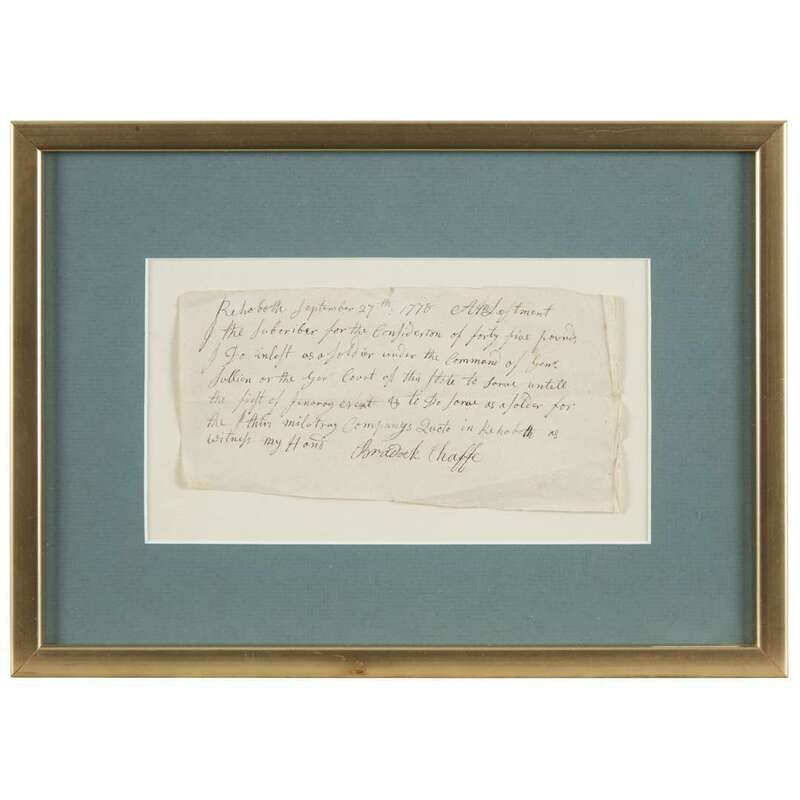 Rehoboth September 27th: 1778 An Lestment
I the Subcriber for the Consideron of forty five pounds
I Do inlest as a soldier under the Command of Genr.
Sullien or the Ger Court of this State to sarve untell
the first of Jenaray & to Do sarve as a solder for
the militray Companys Quoto in Rehoboth as
witness my Hand Bradock Chaffe